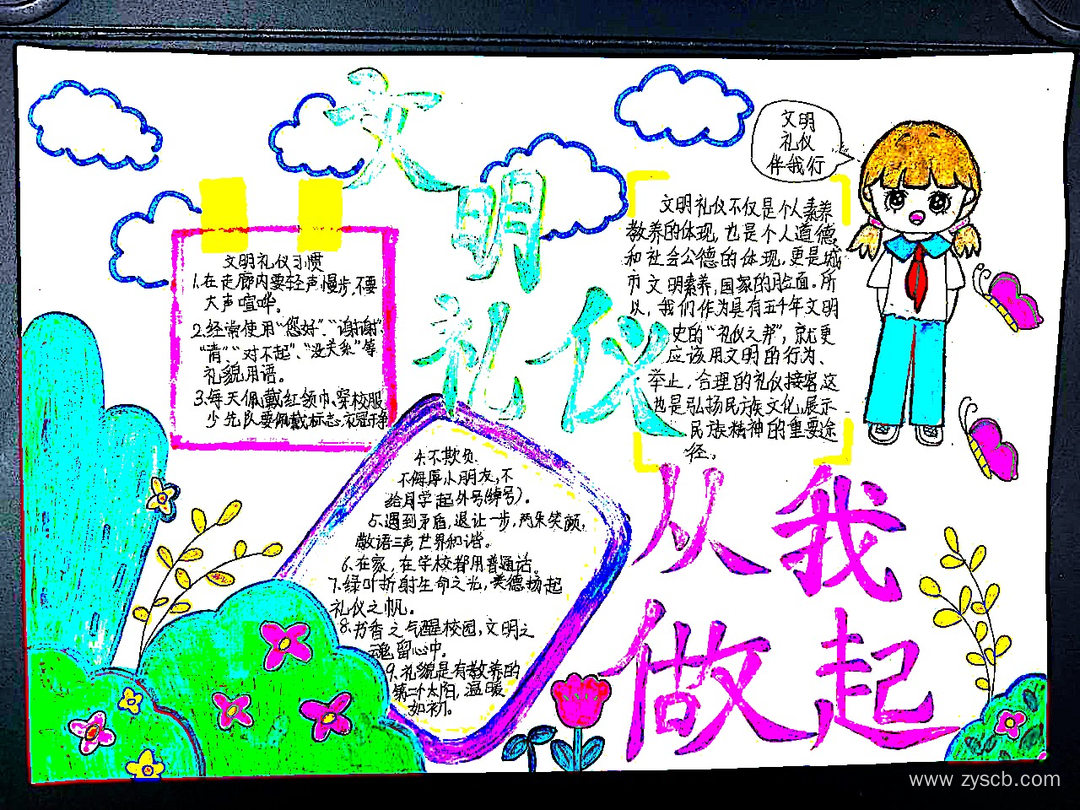 文明
礼仪
从我
做起
文明
礼仪
伴我行
文明礼仪习惯
1.在走廊内要轻声慢步,不要
大声喧哗。
2.经常使用“您好”、“谢谢”
“请”、“对不起”、“没关系”等
礼貌用语。
3.每天佩戴红领巾、穿校服
少先队要佩戴标志
文明礼仪不仅是个人素养
教养的体现,也是个人道德
和社会公德的体现,更是城
市文明素养,国家的脸面。所
以,我们作为具有五千年文明
史的“礼仪之邦”,就更
应该用文明的行为、
举止,合理的礼仪接客,这
也是弘扬民族文化,展示
民族精神的重要途
径。
4.不欺负、
不侮辱小朋友,不
给同学起外号(绰号)。
5.遇到矛盾,退让一步,两朵笑颜,
敬语三声,世界和谐。
6.在家,在学校都用普通话。
7.绿叶折射生命之光,美德扬起
礼仪之帆。
8.书香之气醒校园,文明之
魂留心中。
9.礼貌是有教养的
第二个太阳,温暖
如初。
www.zyscb.com